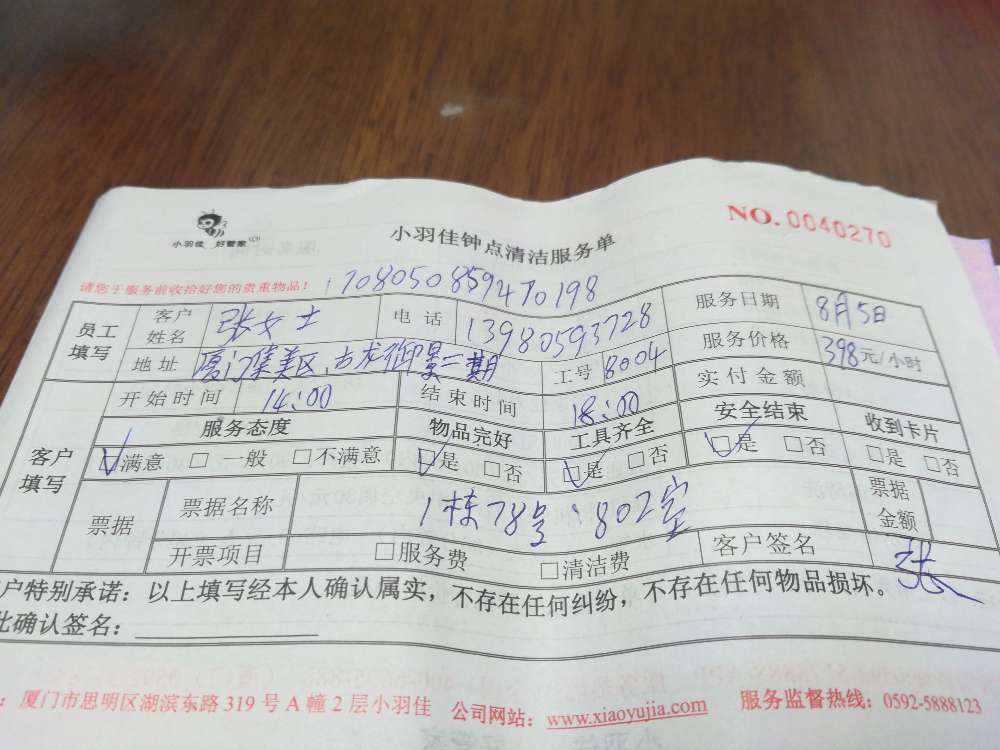 小羽佳 好管家
小羽佳钟点清洁服务单
NO. 0040270
请您于服务前收拾好您的贵重物品！
1708050859470198
员工填写 客户姓名 张女士 电话 13980593728 服务日期 8月5日
地址 厦门集美区，古龙御景二期 工号 8004 服务价格 398元/小时
客户填写 开始时间 14:00 结束时间 18:00 实付金额
服务态度 物品完好 工具齐全 安全结束 收到卡片
☑满意 □一般 □不满意 ☑是 □否 ☑是 □否 ☑是 □否 □是 □否
票据 票据名称 1栋78号：802室 票据金额
开票项目 □服务费 □清洁费 客户签名 张
户特别承诺：以上填写经本人确认属实，不存在任何纠纷，不存在任何物品损坏。
此确认签名：
：厦门市思明区湖滨东路319号A幢2层小羽佳 公司网站：www.xiaoyujia.com 服务监督热线：0592-5888123